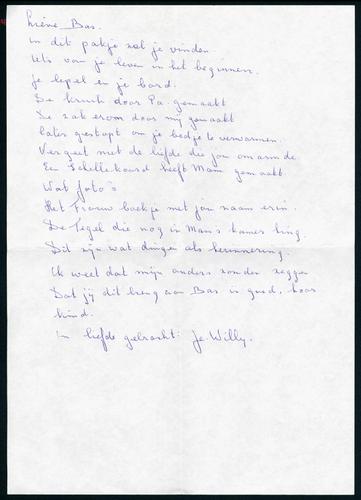 Liéve Bas.
in dit pakje zal je vinden
Iets van je leven in het beginnen.
je lepel en je bord.
De kruik door Pa gemaakt
De zak erom door mij gemaakt
later gestopt om je bedje te verwarmen.
Vergeet niet de liefde die jou omarmde.
Een Schellekoord heeft Mam gemaakt
Wat foto's
Het Trouw boekje met jou naam erin.
De Tegel die nog in Mam's kamer hing.
Dit zijn wat dingen als herinnering.
Ik weet dat mijn anders zonder zeggen
Dat jij dit breng aan Bas is goed, hoor
kind.
In liefde gebracht: Je Willy.